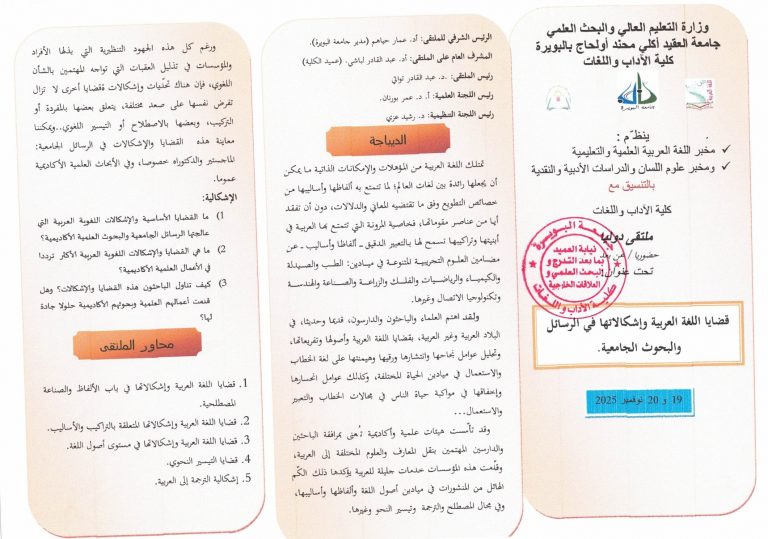 وزارة التعليم العالي والبحث العلمي
جامعة العقيد أكلي محند أولحاج بالبويرة
كلية الآداب واللغات
جامعة البويرة
ينظّم:
✓ مخبر اللغة العربية العلمية والتعليمية
✓ ومخبر علوم اللسان والدراسات الأدبية والنقدية
بالتنسيق مع
كلية الآداب واللغات
ملتقى دوليا
حضوريا / عن بعد
تحت عنوان:
جامعة البويرة
نيابة العميد
لما بعد التدرج و
البحث العلمي و
العلاقات الخارجية
كلية الآداب واللغات
قضايا اللغة العربية وإشكالاتها في الرسائل
والبحوث الجامعية.
19 و 20 نوفمبر 2025
الرئيس الشرفي للملتقى: أ.د. عمار حياهم (مدير جامعة البويرة).
المشرف العام على الملتقى: أ.د. عبد القادر لباشي. (عميد الكلية)
رئيس الملتقى: د. عبد القادر تواتي
رئيس اللجنة العلمية: أ. د. عمر بورنان.
رئيس اللجنة التنظيمية: د. رشيد عزي
الديباجة
تمتلك اللغة العربية من المؤهلات والإمكانات الذاتية ما يمكن
أن يجعلها رائدة بين لغات العالم؛ لما تتمتع به ألفاظها وأساليبها من
خصائص التطويع وفق ما تقتضيه المعاني والدلالات، دون أن تفقد
أيا من عناصر مقوماتها، فخاصية المرونة التي تتمتع بها العربية في
أبنيتها وتراكيبها تسمح لها بالتعبير الدقيق ـ ألفاظا وأساليب ـ عن
مضامين العلوم التجريبية المتنوعة في ميادين: الطب والصيدلة
والكيمياء والرياضيات والفلك والزراعة والصناعة والهندسة
وتكنولوجيا الاتصال وغيرها.
ولقد اهتم العلماء والباحثون والدارسون، قديما وحديثا، في
البلاد العربية وغير العربية، بقضايا اللغة العربية وأصولها وتفريعاتها،
وتحليل عوامل نجاحها وانتشارها ورقيها وهيمنتها على لغة الخطاب
والاستعمال في ميادين الحياة المختلفة، وكذلك عوامل انحسارها
وإخفاقها في مواكبة حياة الناس في مجالات الخطاب والتعبير
والاستعمال...
وقد تأسّست هيئات علمية وأكاديمية تُعنى بمرافقة الباحثين
والدارسين المهتمين بنقل المعارف والعلوم المختلفة إلى العربية،
وقدّمت هذه المؤسسات خدمات جليلة للعربية يؤكدها ذلك الكّم
الهائل من المنشورات في ميادين أصول اللغة وألفاظها وأساليبها،
وفي مجال المصطلح والترجمة وتيسير النحو وغيرها.
ورغم كل هذه الجهود التنظيرية التي بذلها الأفراد
والمؤسسات في تذليل العقبات التي تواجه المهتمين بالشأن
اللغوي، فإن هناك تحدّيات وإشكالات وقضايا أخرى لا تزال
تفرض نفسها على صعد مختلفة، يتعلق بعضها بالمفردة أو
التركيب، وبعضها بالاصطلاح أو التيسير اللغوي..ويمكننا
معاينة هذه القضايا والإشكالات في الرسائل الجامعية:
الماجستير والدكتوراه خصوصا، وفي الأبحاث العلمية الأكاديمية
عموما.
الإشكالية:
1) ما القضايا الأساسية والإشكالات اللغوية العربية التي
عالجتها الرسائل الجامعية والبحوث العلمية الأكاديمية؟
2) ما هي القضايا والإشكالات اللغوية العربية الأكثر ترددا
في الأعمال العلمية الأكاديمية؟
3) كيف تناول الباحثون هذه القضايا والإشكالات؟ وهل
قدمت أعمالهم العلمية وبحوثهم الأكاديمية حلولا جادة
لها؟
محاور الملتقى
1. قضايا اللغة العربية وإشكالاتها في باب الألفاظ والصناعة
المصطلحية.
2. قضايا اللغة العربية وإشكالاتها المتعلقة بالتراكيب والأساليب.
3. قضايا اللغة العربية وإشكالاتها في مستوى أصول اللغة.
4. قضايا التيسير النحوي.
5. إشكالية الترجمة إلى العربية.